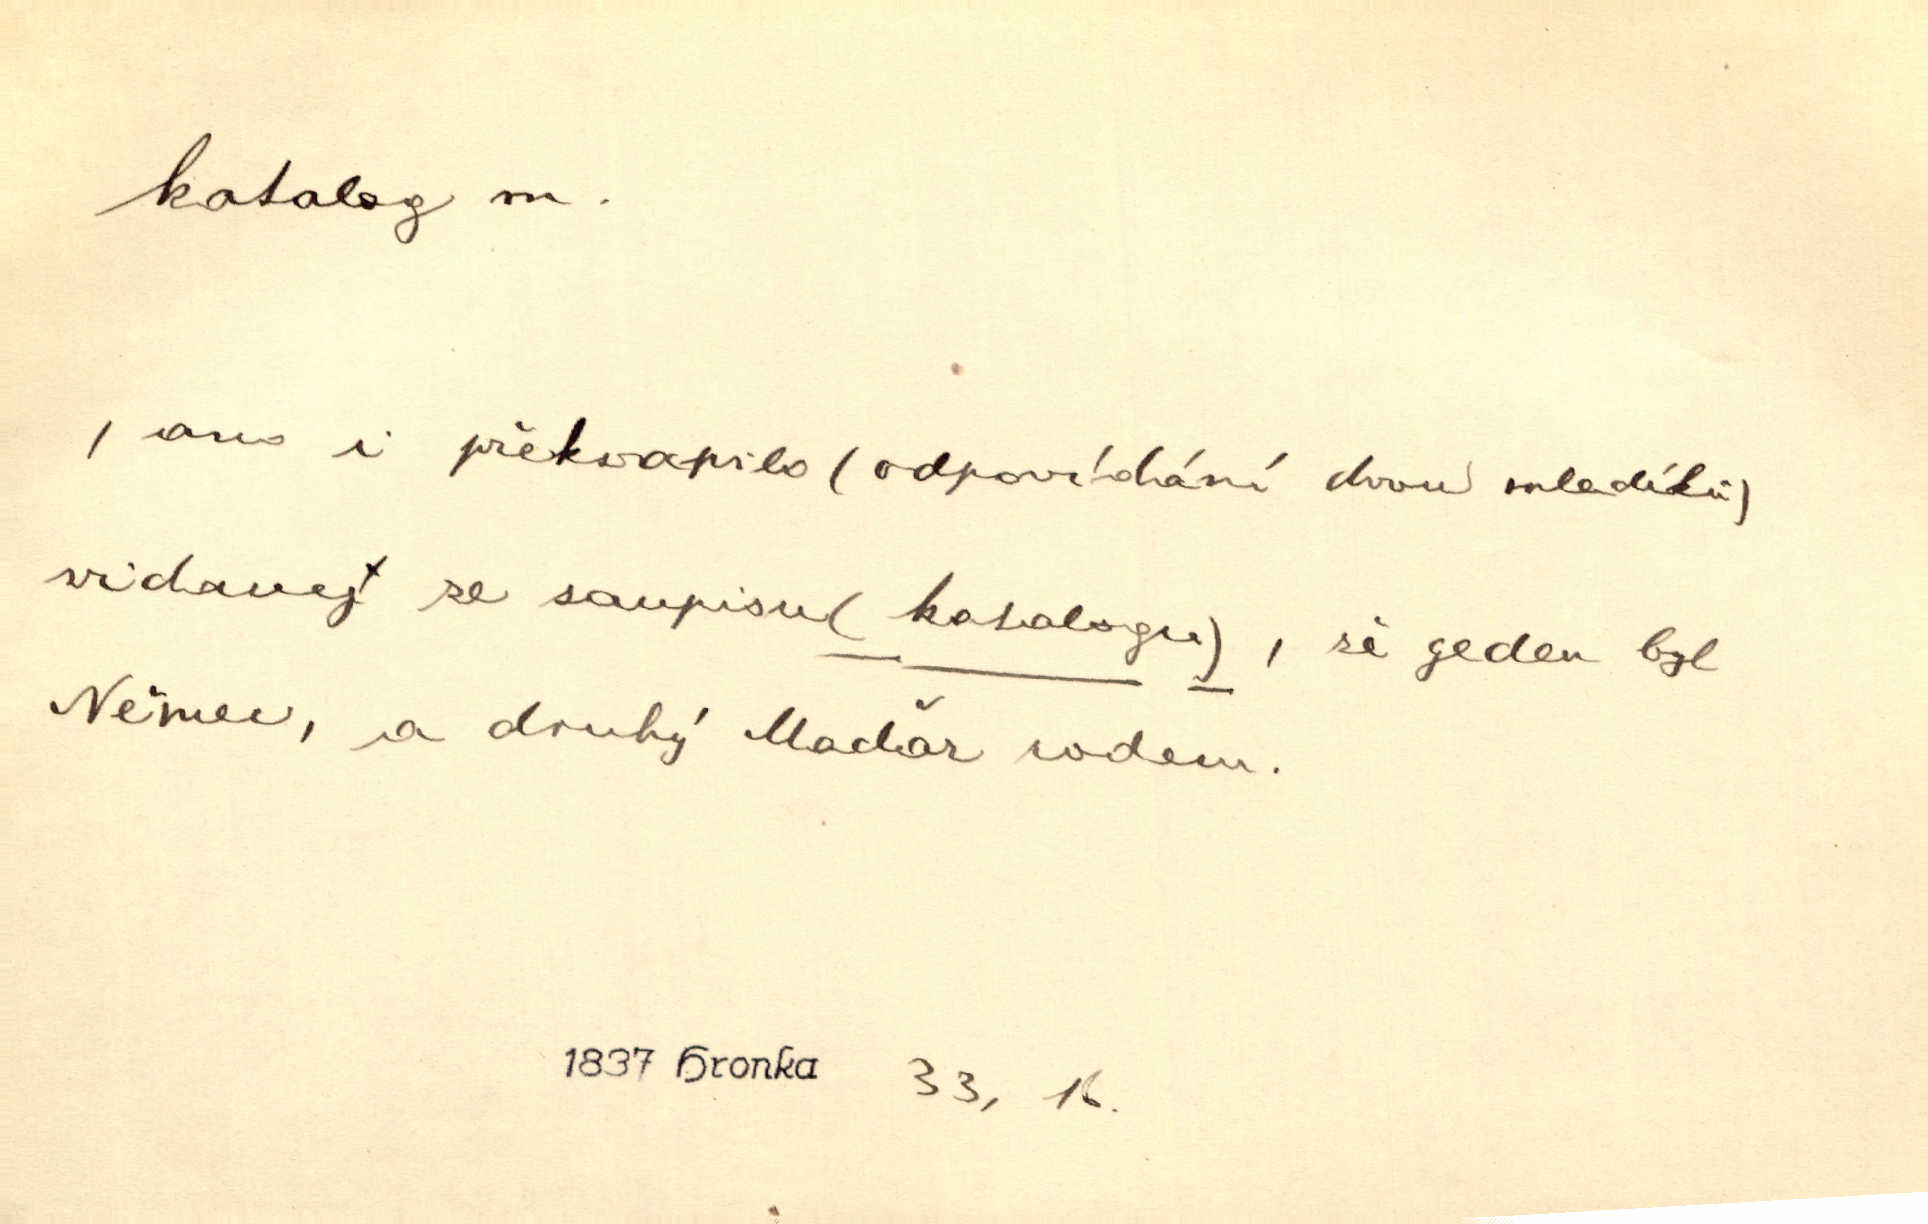 katalog m.
, ano i překwapilo (odpovídání dvou mladíků)
widauc ze saupisu (katalogu), že geden byl
Němec, a druhý Maďar rodem.
1837 Hronka 33, 16.